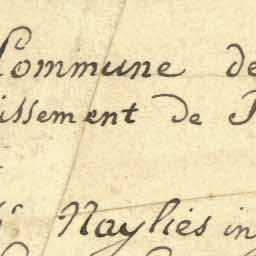 Commune de
issement de
Naylies in